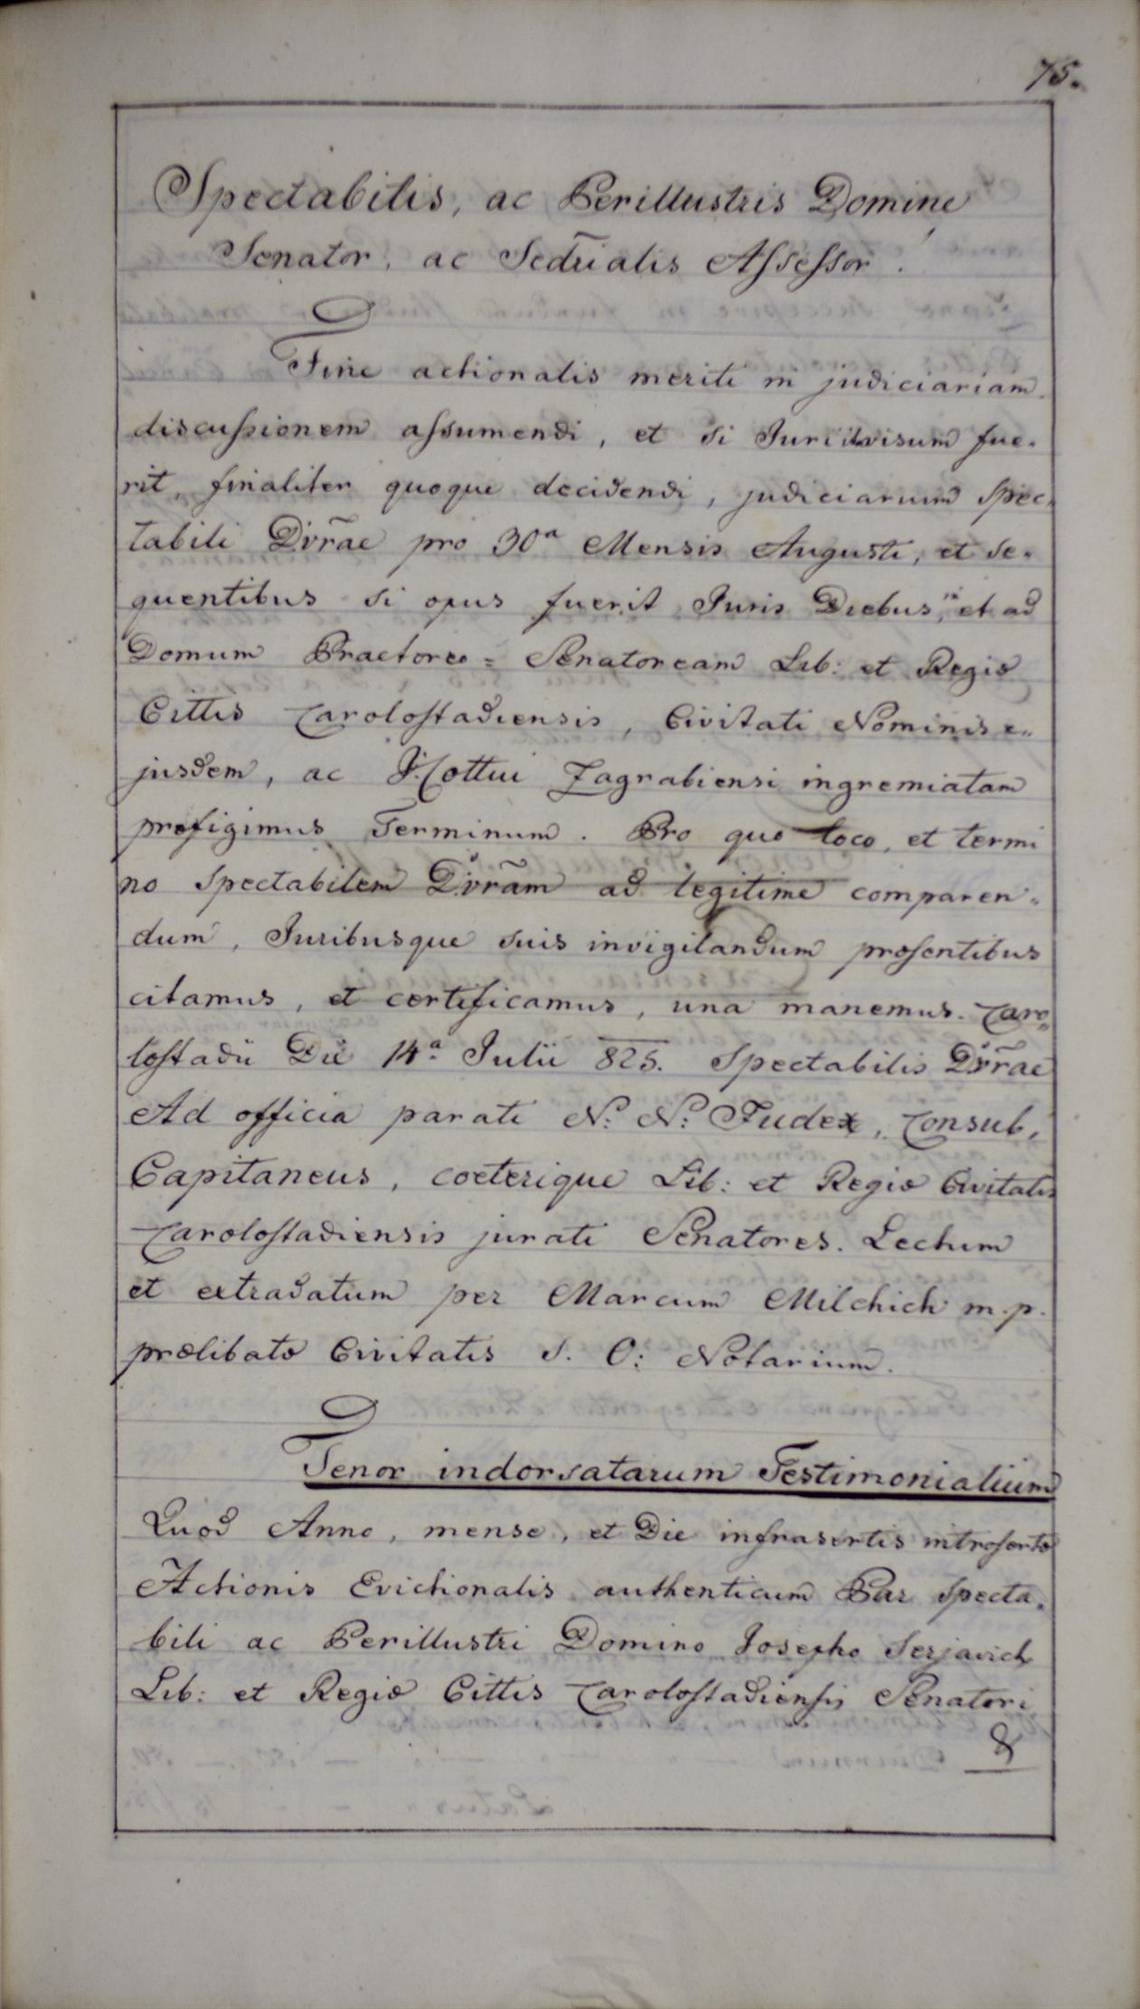 75.
Spectabilis, ac Perillustris Domine
Senator, ac Sedrialis Assessor!
Fine actionalis meriti in judiciariam
discussionem assumendi, et si Juri visum fue-
rit, finaliter quoque decidendi, judiciarium Spec-
tabili Dvrae pro 30a Mensis Augusti, et se-
quentibus si opus fuerit Juris Diebus, et ad
Domum Praetoreo = Senatoream Lib: et Regiæ
Cittis Carolostadiensis, Civitati Nominis e-
jusdem, ac I. Cottui Zagrabiensi ingremiatam
præfigimus Terminum. Pro quo loco, et termi
no Spectabilem Dvram ad legitime comparen-
dum, Juribusque suis invigilandum præsentibus
citamus, et certificamus, una manemus. Caro-
lostadii Die 14a Julii 825. Spectabilis Dvrae
Ad officia parati N: N: Judex, Consul,
Capitaneus, coeterique Lib: et Regiæ Civitatis
Carolostadiensis jurati Senatores. Lectum
et extradatum per Marcum Milchich m.p.
prælibatæ Civitatis S. O: Notarium.
Tenor indorsatarum Testimonialium
Quod Anno, mense, et Die infrasertis introsertæ
Actionis Evictionalis authenticum Par Specta-
bili ac Perillustri Domino Josepho Serjavich
Lib: et Regiæ Cittis Carolostadiensis Senatori
&